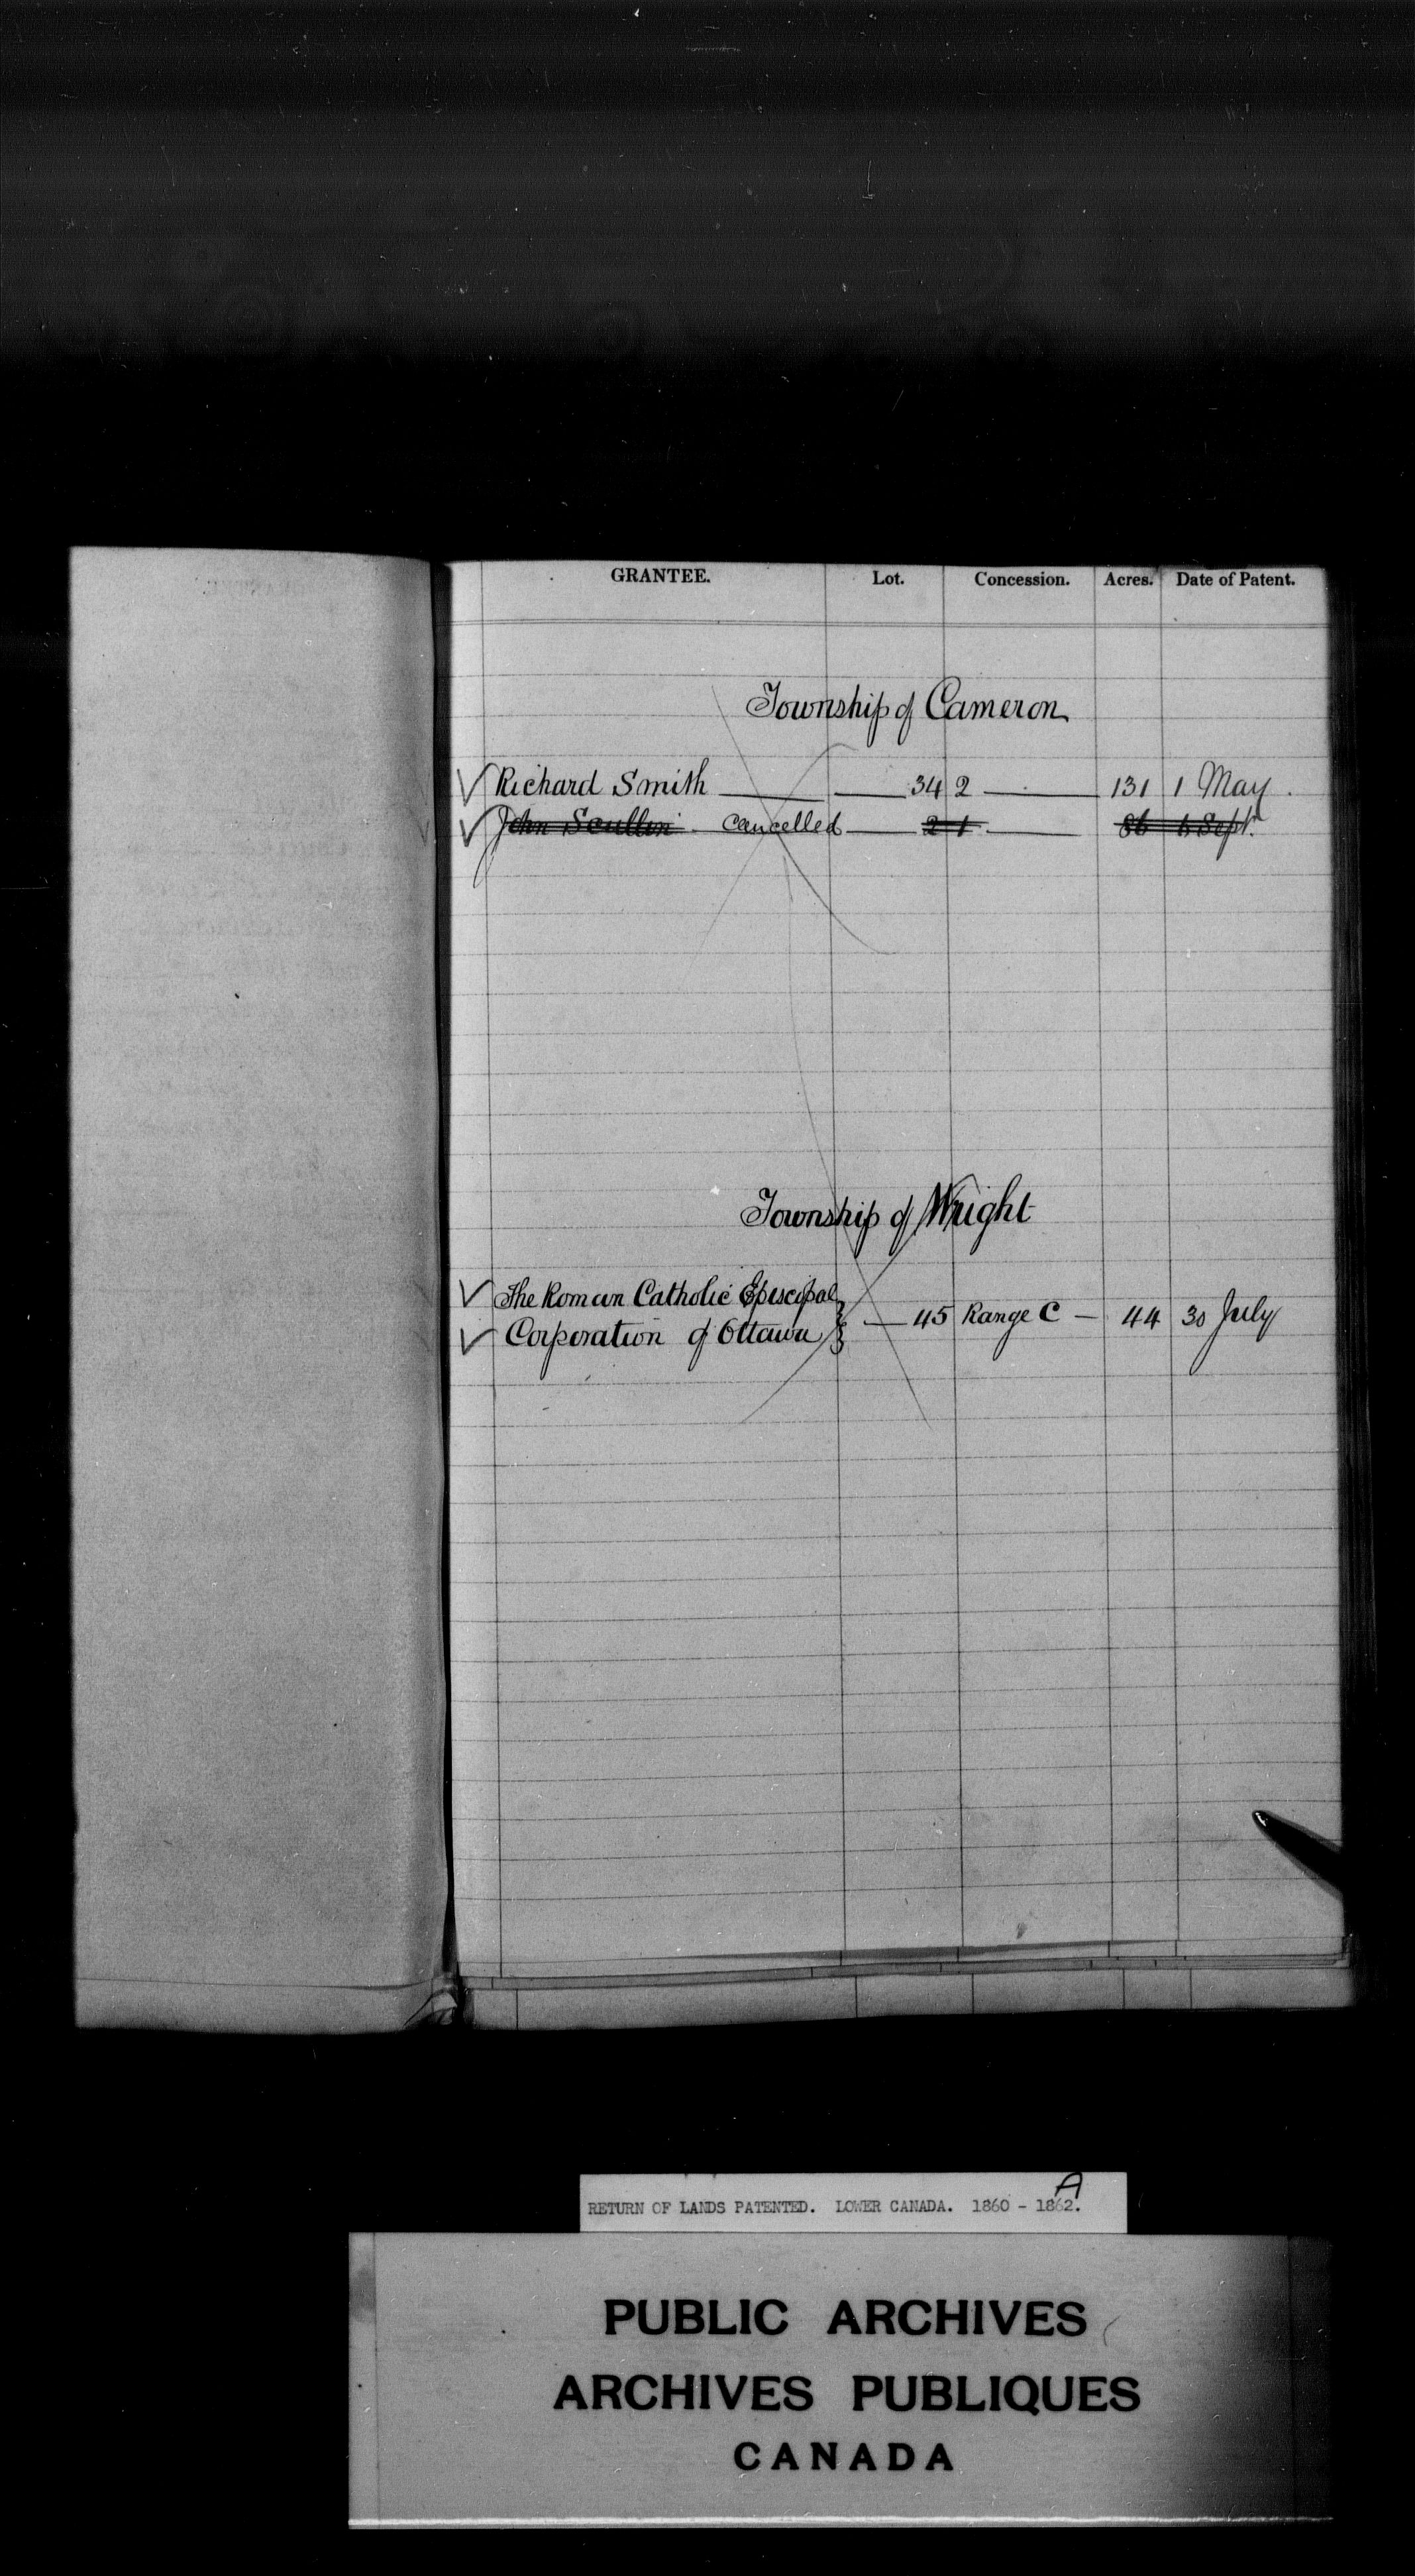 GRANTEE. Lot. Concession. Acres. Date of Patent.
Township of Cameron
Richard Smith 34 2 131 1 May.
John Scullin cancelled 2 1 86 6 Sept.
Township of Wright
The Roman Catholic Episcopal
Corporation of Ottawa 45 Range C 44 30 July
A
RETURN OF LANDS PATENTED. LOWER CANADA. 1860 - 1862.
PUBLIC ARCHIVES
ARCHIVES PUBLIQUES
CANADA